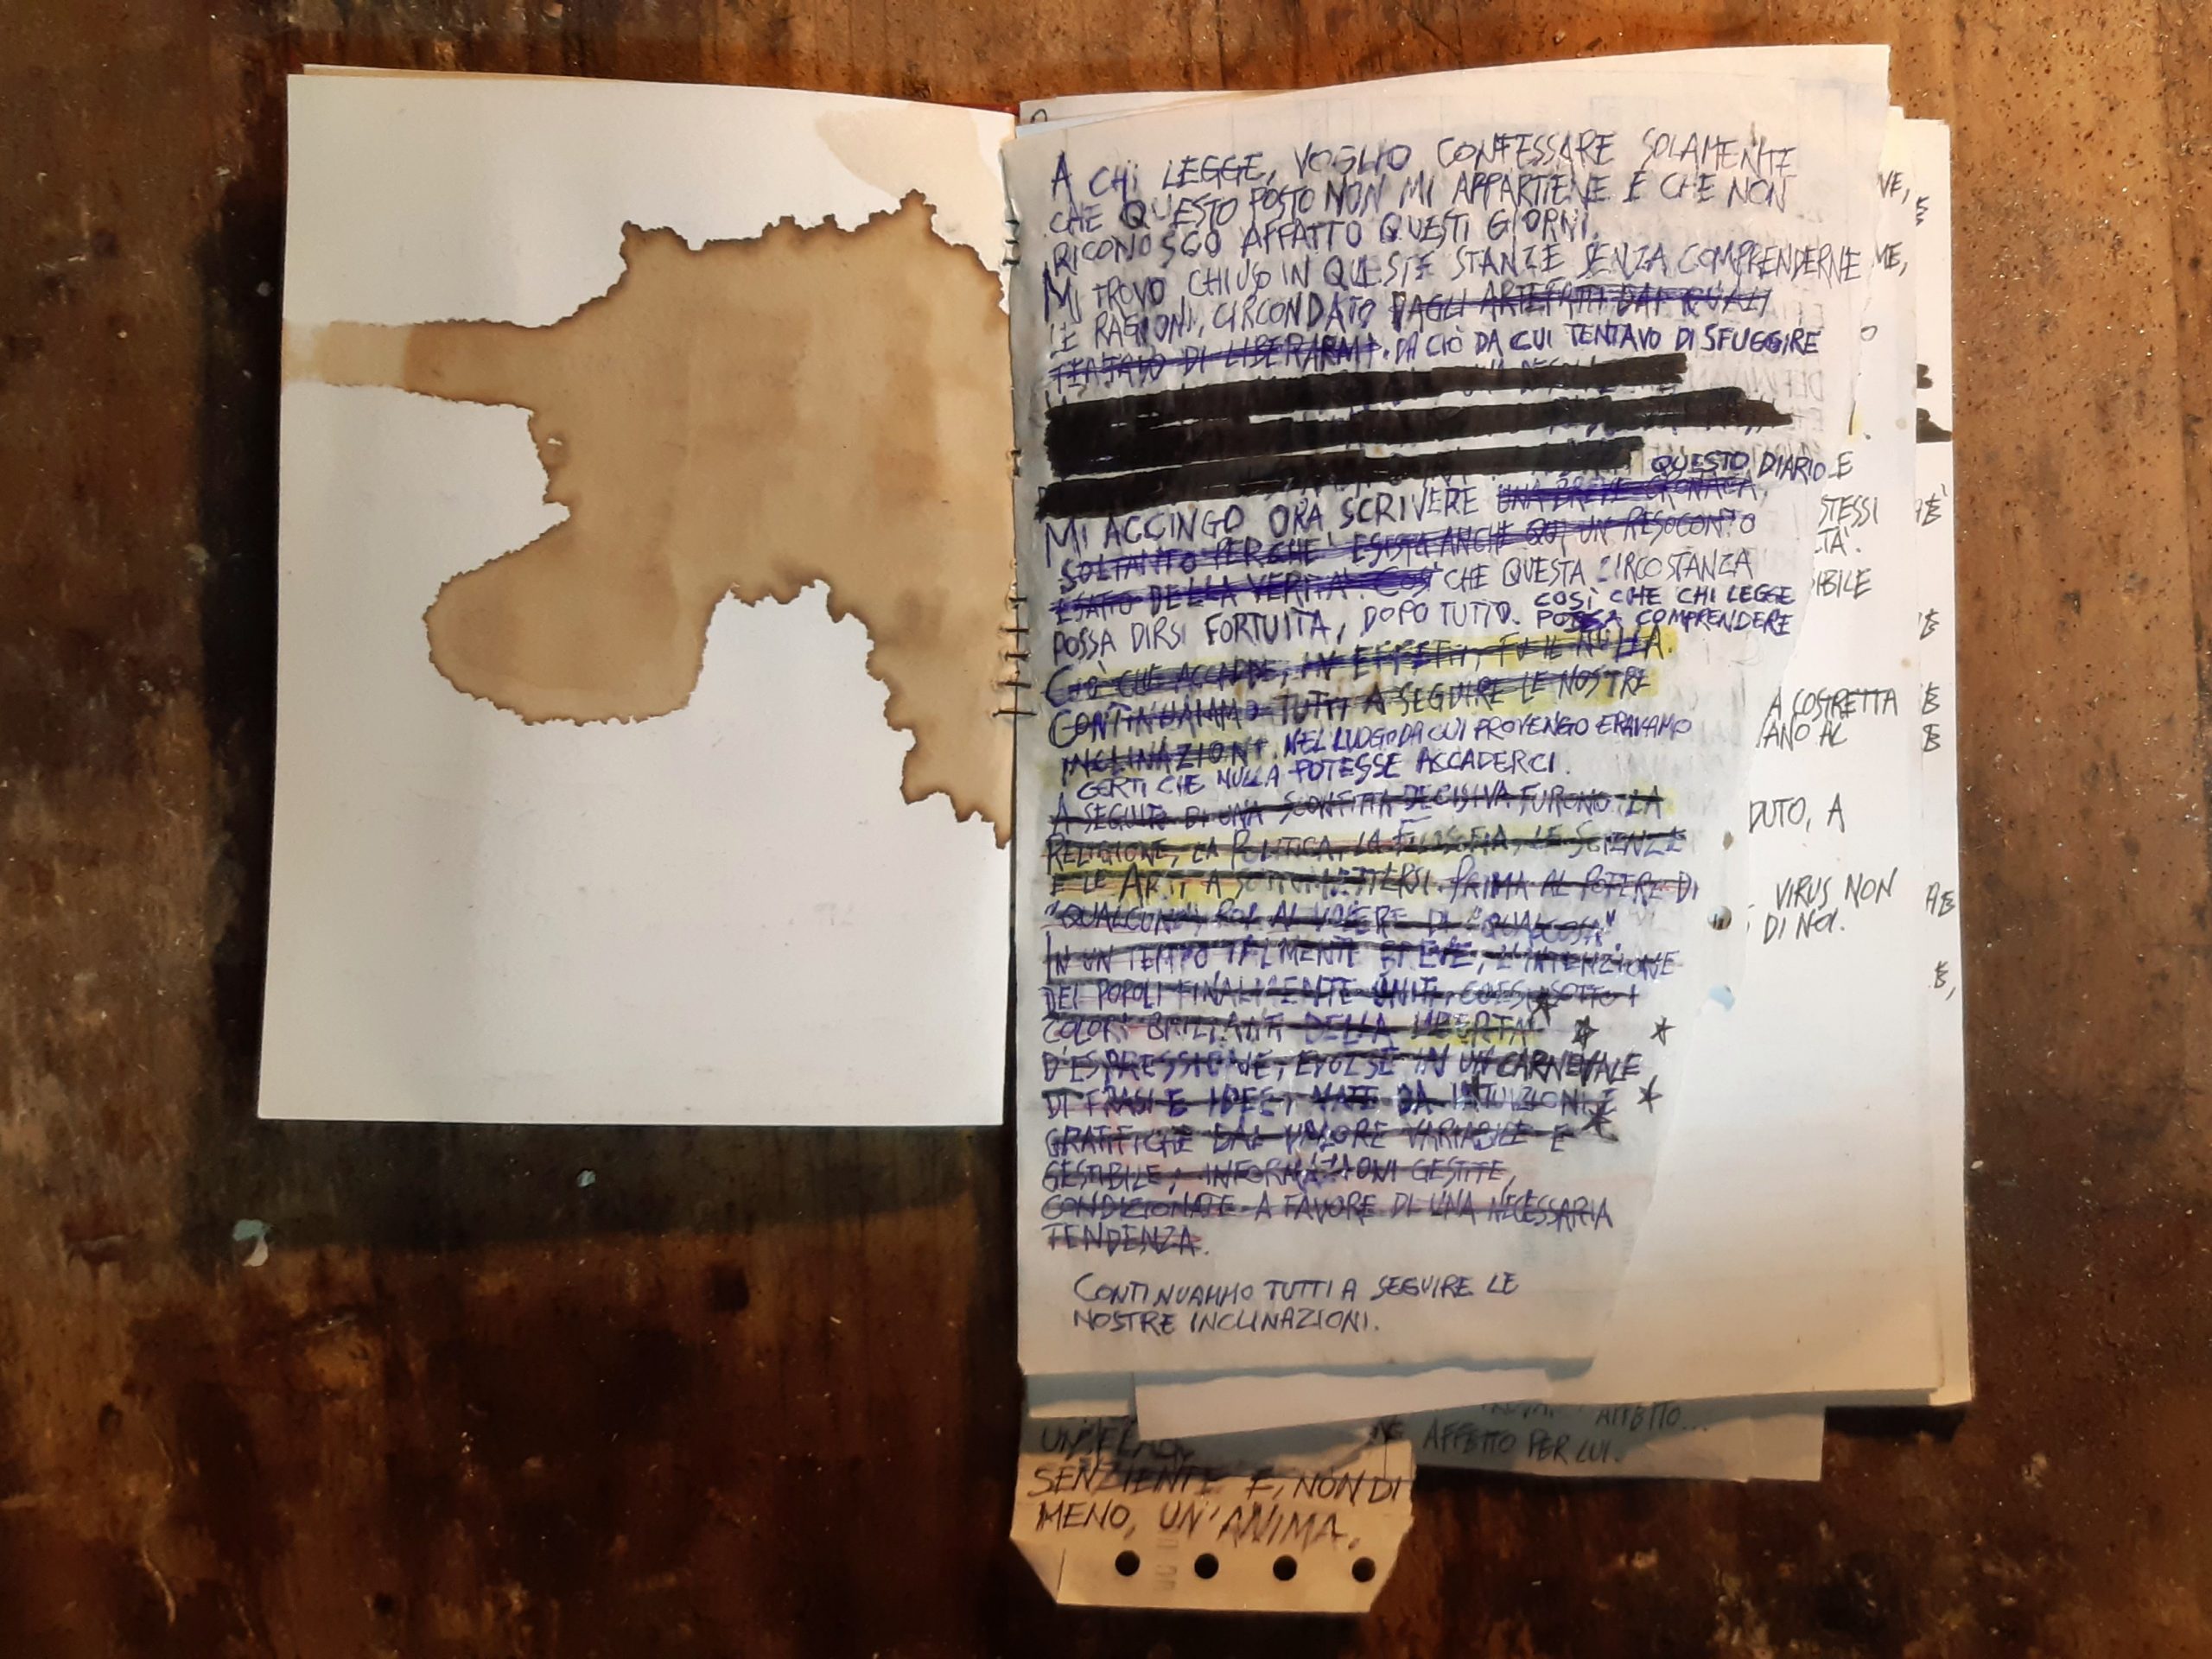 A CHI LEGGE, VOGLIO CONFESSARE SOLAMENTE
CHE QUESTO POSTO NON MI APPARTIENE E CHE NON
RICONOSGO AFFATTO QUESTI GIORNI.
MI TROVO CHIUSO IN QUESTE STANZE SENZA COMPRENDERNE
LE RAGIONI, CIRCONDATO DAGLI ARTEFATTI DAI QUALI
TENTAVO DI LIBERARMI. DA CIÒ DA CUI TENTAVO DI SFUGGIRE
QUESTO DIARIO E
MI ACCINGO ORA SCRIVERE UNA BREVE CRONACA,
SOLTANTO PERCHE' ESISTA ANCHE QUI UN RESOCONTO
ESATTO DELLA VERITA'. COSÌ CHE QUESTA CIRCOSTANZA
COSÌ CHE CHI LEGGE
POSSA DIRSI FORTUITA, DOPO TUTTO. POSSA COMPRENDERE
CIÒ CHE ACCADDE, IN EFFETTI, FU IL NULLA.
CONTINUAMMO TUTTI A SEGUIRE LE NOSTRE
INCLINAZIONI. NEL LUOGO DA CUI PROVENGO ERAVAMO
CERTI CHE NULLA POTESSE ACCADERCI.
A SEGUITO DI UNA SCONFITTA DECISIVA FURONO LA
RELIGIONE, LA POLITICA, LA FILOSOFIA, LE SCIENZE
E LE ARTI A SOTTOMETTERSI. PRIMA AL POTERE DI
"QUALCUNO", POI AL VOLERE DI "QUALCOSA".
IN UN TEMPO TALMENTE BREVE, L'INTENZIONE
DEI POPOLI FINALMENTE UNITI, COESI SOTTO I
COLORI BRILLANTI DELLA LIBERTA'
D'ESPRESSIONE, EVOLSE IN UN CARNEVALE
DI FRASI E IDEE, NATE DA INTUIZIONI E
GRATIFICHE DAL VALORE VARIABILE E
GESTIBILE, INFORMAZIONI GESTITE,
CONDIZIONATE A FAVORE DI UNA NECESSARIA
TENDENZA.
CONTINUAMMO TUTTI A SEGUIRE LE
NOSTRE INCLINAZIONI.
VE,
ME,
STESSI
TA'.
IBILE
A COSTRETTA
ANO AL
DUTO, A
VIRUS NON
DI NOI.
AFFETTO PER LUI.
SENZIENTE E, NON DI
MENO, UN'ANIMA.